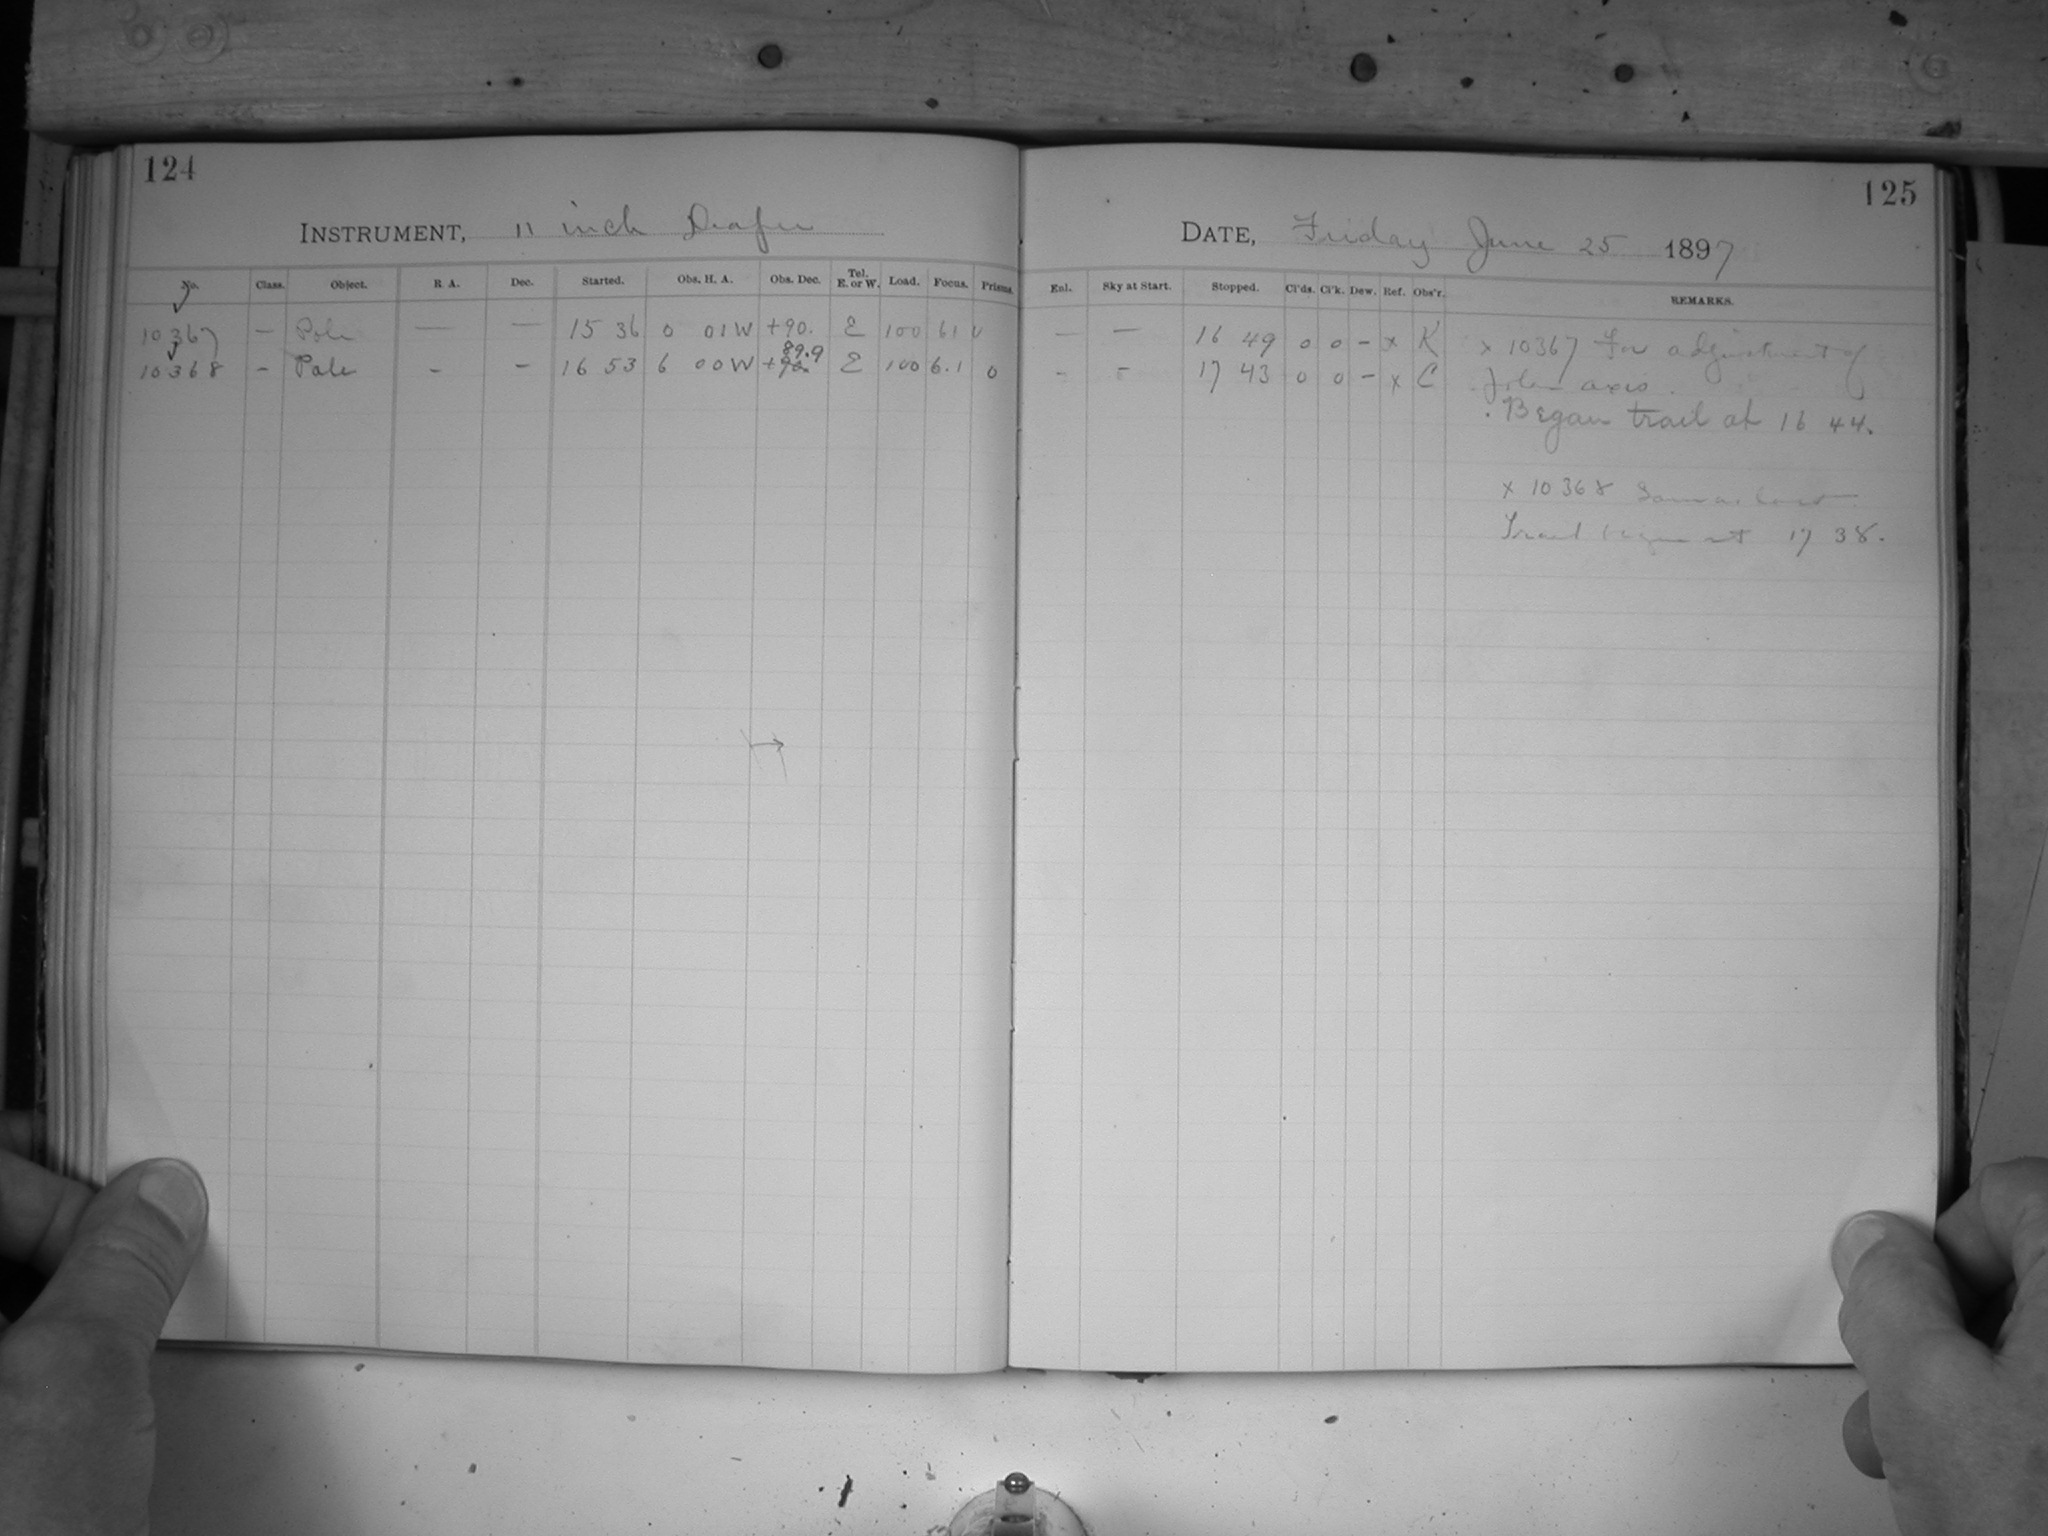 124
INSTRUMENT, 11 inch Draper
No. Class. Object. R. A. Dec. Started. Obs. H. A. Obs. Dec. Tel. E. or W. Load. Focus. Prisms.
10367 — Pole — — 15 36 0 01W +90. E 100 61 0
89.9
10368 – Pole – – 16 53 6 00W +90. E 100 6.1 0
125
DATE, Friday June 25 1897
Enl. Sky at Start. Stopped. Cl'ds. Cl'k. Dew. Ref. Obs'r. REMARKS.
— — 16 49 0 0 – x K x 10367 For adjustment of
– – 17 43 0 0 – x C polar axis.
. Began trail at 16 44.
x 10368 Same as last
Trail began at 17 38.